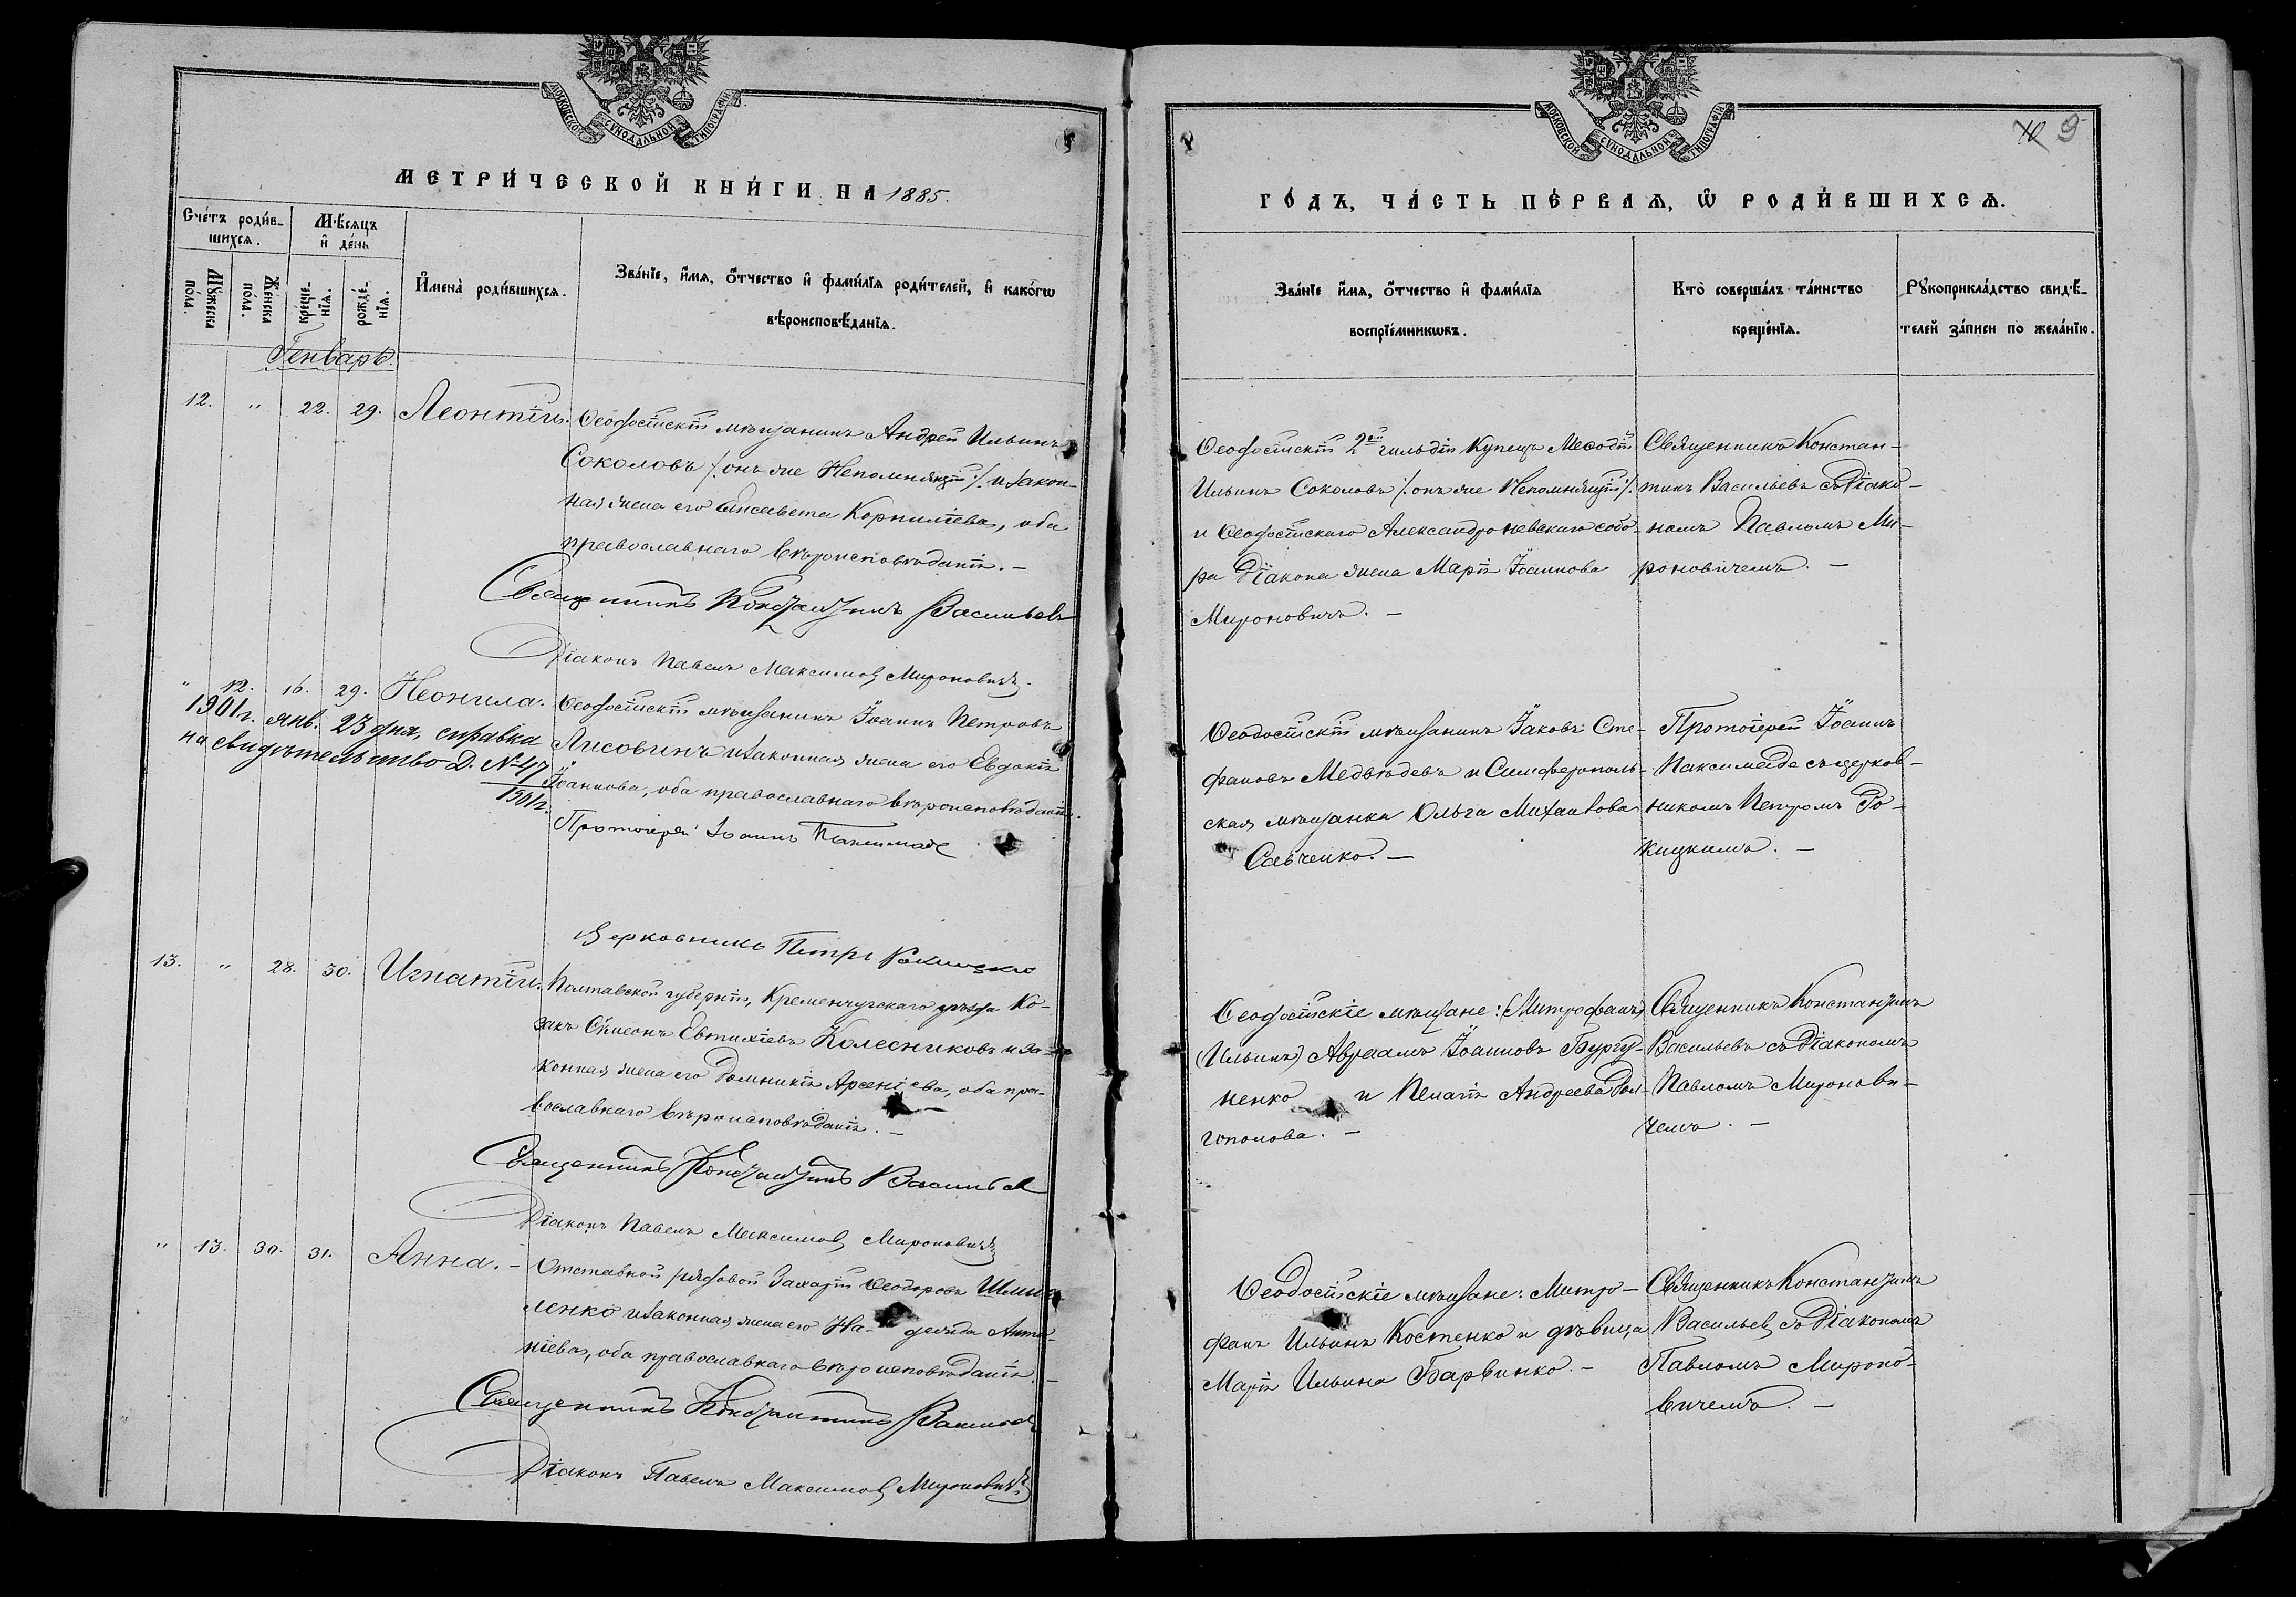 МОСКОВСКОЙ СѴНОДАЛЬНОЙ ТИПОГРАФІИ
МЕТРИ́ЧЕСКОЙ КНИ́ГИ НА 1885.
Сче́тъ роди́в-
шихся.
Мѣ́сяцъ
и҆ де́нь
Мꙋ́жеска
по́ла.
Же́нска
по́ла.
креще́-
нїѧ.
рожде́-
нїѧ.
И҆мена̀ роди́вшихсѧ.
Зва́нїе, и҆́мѧ, ѻ҆́тчество и҆ фами́лїѧ роди́телей, и҆ како́гѡ
вѣроисповѣ́данїѧ.
Генварь.
12. " 22. 29. Леонтій.
Ѳеодосійскій мѣщанинъ Андрей Ильинъ
Соколовъ /: онъ же Непомнящій :/ и закон-
ная жена его Елисавета Корниліева, оба
православнаго вѣроисповѣданія. —
Священникъ Константинъ Васильевъ
Діаконъ Павелъ Максимовъ Мироновичъ.
" 12. 16. 29. Неонила.
Ѳеодосійскій мѣщанинъ Іоаннъ Петровъ
Лисовинъ и законная жена его Евдокія
Іоаннова, оба православнаго вѣроисповѣданія.
Протоіерей Іоаннъ Паксимаде
1901 г. янв. 23 дня, справка
на свидѣтельство Д. № 47
1901 г.
Церковникъ Петръ Рожицкій
13. " 28. 30. Игнатій.
Полтавской губерніи, Кременчугскаго уѣзда Ко-
закъ Сѵмеонъ Евтихіевъ Колесниковъ и за-
конная жена его Домникія Арсеніева, оба пра-
вославнаго вѣроисповѣданія. —
Священникъ Константинъ Васильевъ
Діаконъ Павелъ Максимовъ Мироновичъ
" 13. 30. 31. Анна. —
Отставной рядовой Захарій Ѳеодоровъ
ленко и законная жена его На- дежда Анто-
ніева, оба православнаго вѣроисповѣданія. —
Священникъ Константинъ Васильевъ
Діаконъ Павелъ Максимовъ Мироновичъ
МОСКОВСКОЙ СѴНОДАЛЬНОЙ ТИПОГРАФІИ
10 9
ГО́ДЪ, ЧА́СТЬ ПЕ́РВАѦ, Ѡ҆ РОДИ́ВШИХСѦ.
Зва́нїе и҆́мѧ, ѻ҆́тчество и҆ фами́лїѧ
воспрїе́мникѡвъ.
Кто̀ соверша́лъ та́инство
креще́нїѧ.
Рꙋкоприкла́дство свидѣ́-
телей за́писи по жела́нїю.
Ѳеодосійскій 2ой гильдіи Купецъ Меѳодій
Ильинъ Соколовъ /: онъ же Непомнящій :/
и Ѳеодосійскаго Александроневскаго собо-
ра Діакона жена Марія Іоаннова
Мироновичъ. —
Священникъ Констан-
тинъ Васильевъ съ Діако-
номъ Павломъ Ми-
роновичемъ. —
Ѳеодосійскій мѣщанинъ Іаковъ Сте-
фановъ Медвѣдевъ и Симферополь-
ская мѣщанка Ольга Михаилова
Савченко. —
Протоіерей Іоаннъ
Паксимаде съ церков-
никомъ Петромъ Ро-
жицкимъ. —
Ѳеодосійскіе мѣщане: (Митрофанъ)
(Ильинъ) Авраамъ Іоанновъ Бургу-
ненко и Пелагія Андреева Дол-
гополова. —
Священникъ Константинъ
Васильевъ съ Діакономъ
Павломъ Миронови-
чемъ. —
Ѳеодосійскіе мѣщане: Митро-
фанъ Ильинъ Костенко и дѣвица
Марія Ильина Барвинко. —
Священникъ Константинъ
Васильевъ съ Діакономъ
Павломъ Мироно-
вичемъ. —